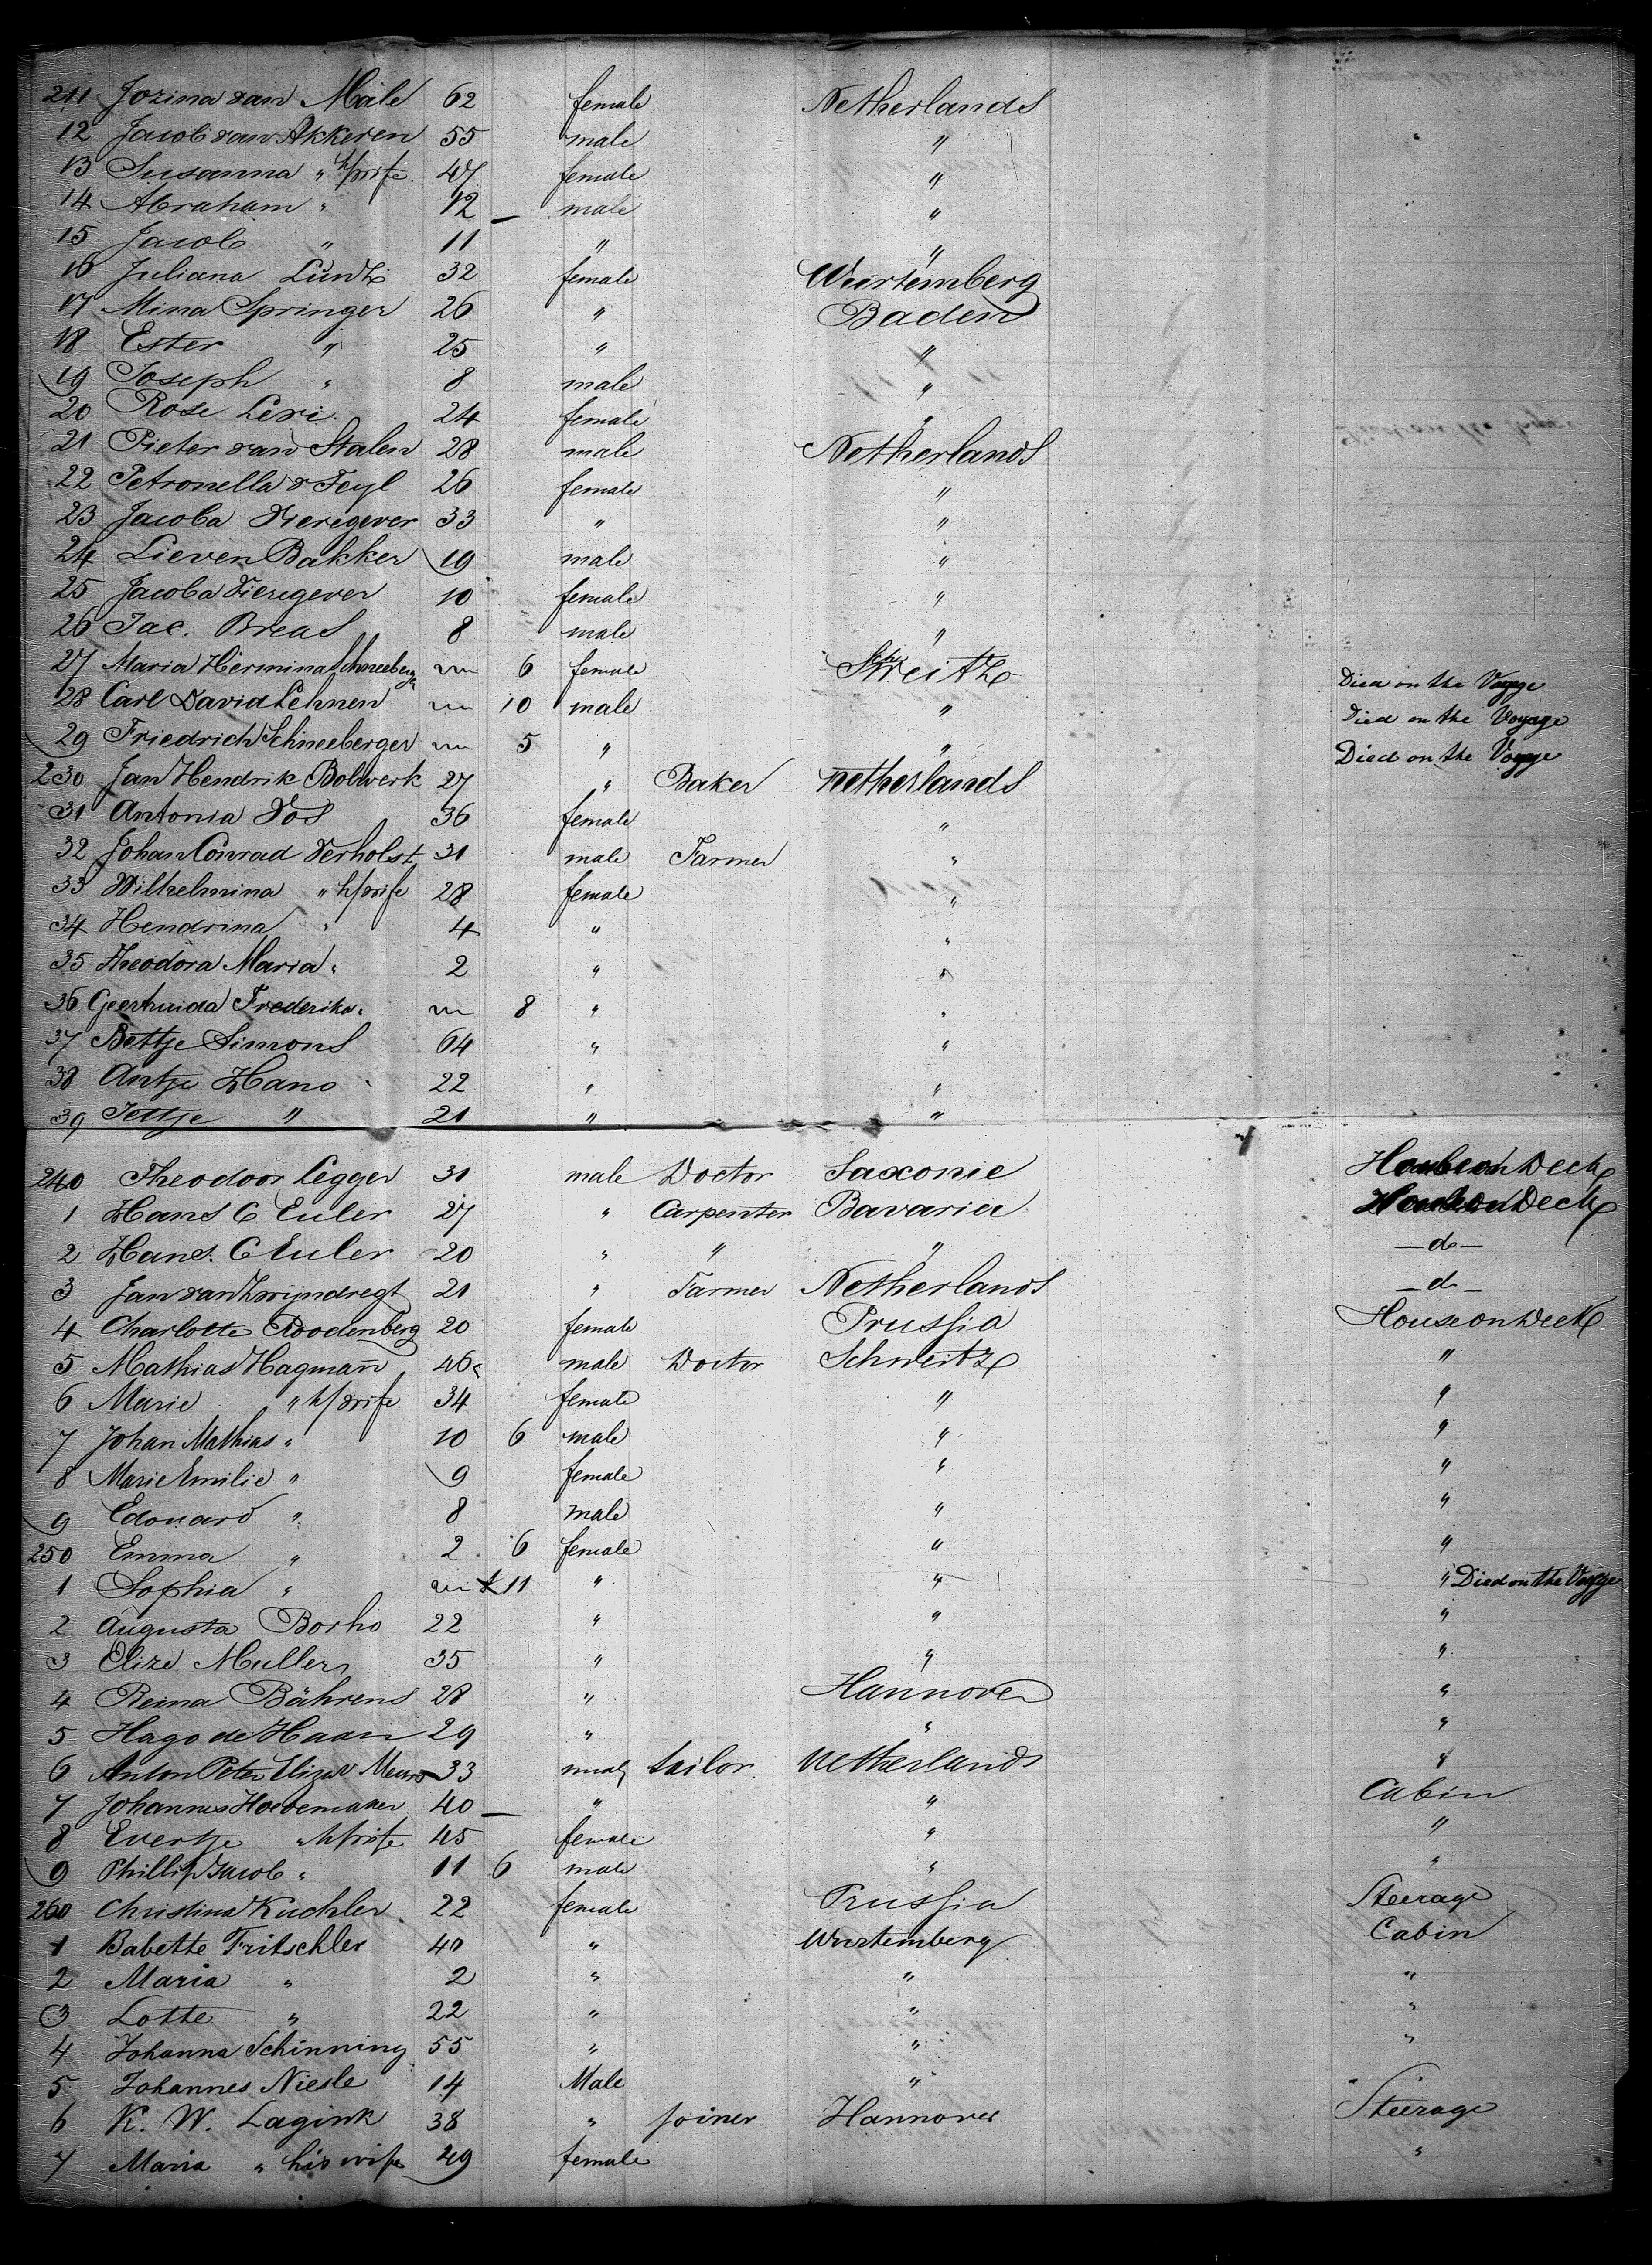 211 Jozina van Male 62 female Netherlands
12 Jacob van Akkeren 55 male "
13 Susanna " h/wife 47 female "
14 Abraham " 12 male "
15 Jacob " 11 " "
16 Juliana 32 female Wurtemberg
17 Mina Springer 26 " Baden
18 Ester " 25 " "
19 Joseph " 8 male "
20 Rose Levi 24 female "
21 Pieter van Stalen 28 male Netherlands
22 Petronella v Feyl 26 female "
23 Jacoba Vieregever 33 " "
24 Lieven Bakker 19 male "
25 Jacoba Vieregever 10 female "
26 Jac. Breas 8 male "
27 Maria Hermina Schneeberger 6 female Schweitz Died on the Voyage
28 Carl David Lehnen 10 male " Died on the Voyage
29 Friedrich Schneeberger 5 " " Died on the Voyage
230 Jan Hendrik Bolwerk 27 " Baker Netherlands
31 Antonia Vos 36 female "
32 Johan Conrad Verholst 31 male Farmer "
33 Wilhelmina " h/wife 28 female "
34 Hendrina " 4 " "
35 Theodora Maria " 2 " "
36 Geertruida Frederika " 8 " "
37 Bettje Simons 64 " "
38 Antje Hano 22 " "
39 Jettje " 21 " "
240 Theodoor Legger 31 male Doctor Saxonie House on Deck
1 Hans C Euler 27 " Carpenter Bavaria House on Deck
2 Hans. C Euler 20 " " " — do —
3 Jan van Zwijndregt 21 " Farmer Netherlands — do —
4 Charlotte Roodenberg 20 female Prussia House on Deck
5 Mathias Hagmann 46 male Doctor Schweitz "
6 Marie " h/wife 34 female " "
7 Johan Mathias " 10 6 male " "
8 Marie Emilie " 9 female " "
9 Edouard " 8 male " "
250 Emma " 2 6 female " "
1 Sophia " 11 " " " Died on the Voyage
2 Augusta Borho 22 " " "
3 Elize Muller 35 " " "
4 Reina Bährens 28 " Hannover "
5 Hago de Haan 29 " " "
6 Anton Peter Elizas 33 male tailor Netherlands "
7 Johannes Hoedemaker 40 " " Cabin
8 Evertje " h/wife 45 female " "
9 Phillip Jacob " 11 6 male " "
260 Christina Kuchler 22 female Prussia Steerage
1 Babette Fritschler 40 " Wurtemberg Cabin
2 Maria " 2 " " "
3 Lotte " 22 " " "
4 Johanna Schinning 55 " " "
5 Johannes Niesle 14 Male " "
6 K. W. Lagink 38 " Joiner Hannover Steerage
7 Maria " his wife 49 female "